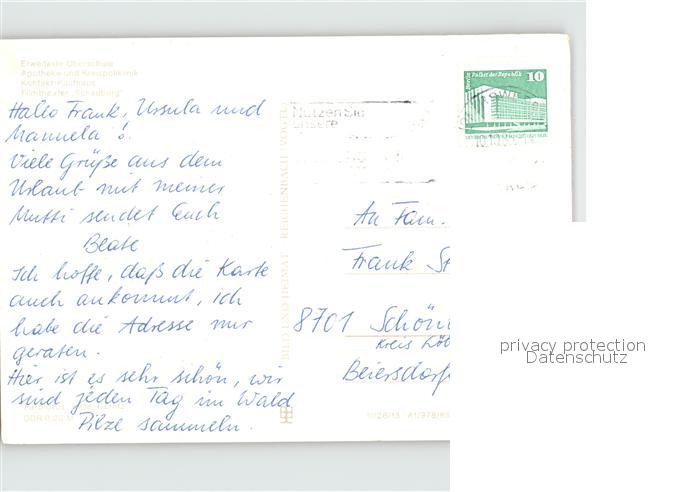 Erweiterte Oberschule
Apotheke und Kreispoliklinik
Kontakt-Kaufhaus
Filmtheater „Schauburg“
Hallo Frank, Ursula und
Manuela !
Viele Grüße aus dem
Urlaub mit meiner
Mutti sendet Euch
Beate
Ich hoffe, daß die Karte
auch ankommt, ich
habe die Adresse nur
geraten.
Hier ist es sehr schön, wir
sind jeden Tag im Wald
Pilze sammeln.
DDR 0,20 M
BILD UND HEIMAT REICHENBACH VOGTL
Nutzen Sie
unsere
Palast der Republik 10
An Fam.
Frank St
8701 Schön
Kreis Löb
Beiersdorfe
A1/978/83
privacy protection
Datenschutz